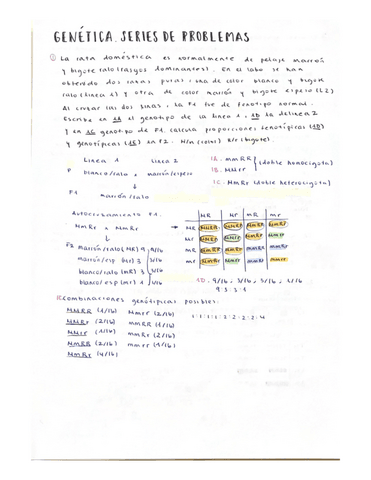 GENÉTICA. SERIES DE PROBLEMAS
① La rata doméstica es normalmente de pelaje marrón
y bigote ralo (rasgos dominantes). En el labo se han
obtenido dos líneas puras: una de color blanco y bigote
ralo (línea 1) y otra de color marrón y bigote espeso (L2)
Al cruzar las dos líneas, la F1 fue de fenotipo normal.
Escribe en 1A el genotipo de la línea 1, 1B la de línea 2
y en 1C genotipo de F1. Calcula proporciones fenotípicas (1D)
y genotípicas (1E) en F2. M/m (color) R/r (bigote).
Línea 1 Línea 2
P blanco/ralo x marrón/espeso
F1 marrón/ralo
1A. mmRR (doble homocigota)
1B. MMrr
1C. MmRr (doble heterocigota)
Autocruzamiento F1.
MmRr x MmRr
F2 marrón/ralo (MR) 9 9/16
marrón/esp (Mr) 3 3/16
blanco/ralo (mR) 3 3/16
blanco/esp (mr) 1 1/16
MR Mr mR mr
MR MMRR MMRr MmRR MmRr
Mr MMRr MMrr MmRr Mmrr
mR MmRR MmRr mmRR mmRr
mr MmRr Mmrr mmRr mmrr
1D. 9/16; 3/16; 3/16; 1/16
9:3:3:1
Combinaciones genotípicas posibles:
MMRR (1/16) Mmrr (2/16)
MMRr (2/16) mmRR (1/16)
MMrr (1/16) mmRr (2/16)
MmRR (2/16) mmrr (1/16)
MmRr (4/16)
1:1:1:1:2:2:2:2:4